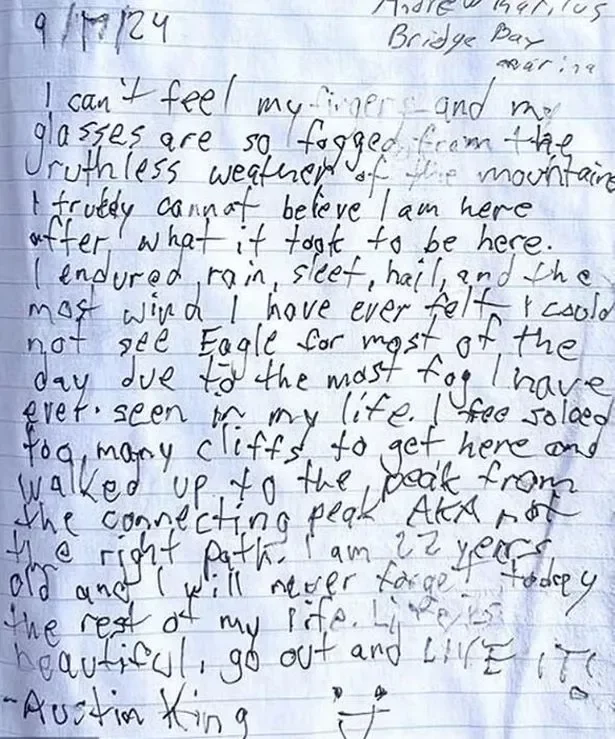 9/17/24
Bridge Bay
marina
I can't feel my fingers and my
glasses are so fogged from the
ruthless weather of the mountains
I truley cannot believe I am here
after what it took to be here.
I endured rain, sleet, hail, and the
most wind I have ever felt I could
not see Eagle for most of the
day due to the most fog I have
ever seen in my life. I free soloed
too many cliffs to get here and
walked up to the peak from
the connecting peak AKA not
the right path. I am 22 years
old and I will never forget today
the rest of my life. Life is
beautiful, go out and LIVE IT!
-Austin King